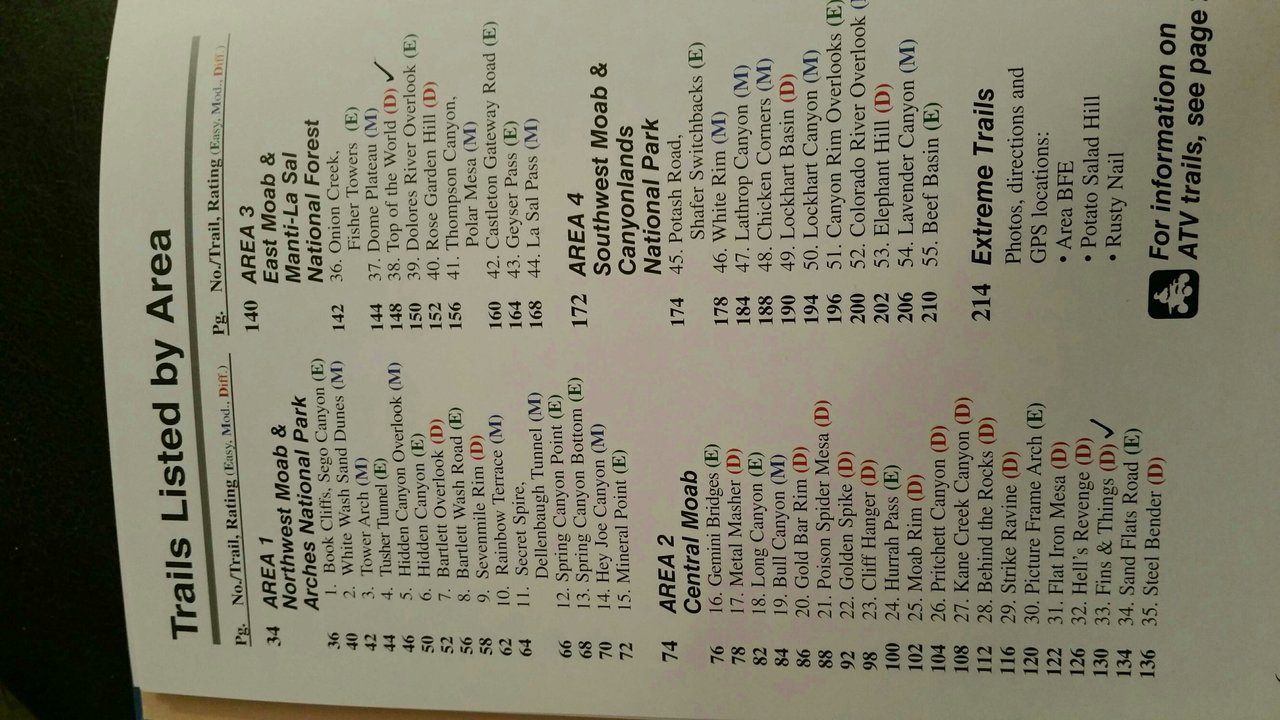 Trails Listed by Area
Pg. No./Trail, Rating (Easy, Mod., Diff.)
34 AREA 1
Northwest Moab &
Arches National Park
36 1. Book Cliffs, Sego Canyon (E)
40 2. White Wash Sand Dunes (M)
42 3. Tower Arch (M)
44 4. Tusher Tunnel (E)
46 5. Hidden Canyon Overlook (M)
50 6. Hidden Canyon (E)
52 7. Bartlett Overlook (D)
56 8. Bartlett Wash Road (E)
58 9. Sevenmile Rim (D)
62 10. Rainbow Terrace (M)
64 11. Secret Spire,
Dellenbaugh Tunnel (M)
66 12. Spring Canyon Point (E)
68 13. Spring Canyon Bottom (E)
70 14. Hey Joe Canyon (M)
72 15. Mineral Point (E)
74 AREA 2
Central Moab
76 16. Gemini Bridges (E)
78 17. Metal Masher (D)
82 18. Long Canyon (E)
84 19. Bull Canyon (M)
86 20. Gold Bar Rim (D)
88 21. Poison Spider Mesa (D)
92 22. Golden Spike (D)
98 23. Cliff Hanger (D)
100 24. Hurrah Pass (E)
102 25. Moab Rim (D)
104 26. Pritchett Canyon (D)
108 27. Kane Creek Canyon (D)
112 28. Behind the Rocks (D)
116 29. Strike Ravine (D)
120 30. Picture Frame Arch (E)
122 31. Flat Iron Mesa (D)
126 32. Hell's Revenge (D)
130 33. Fins & Things (D) ✓
134 34. Sand Flats Road (E)
136 35. Steel Bender (D)
Pg. No./Trail, Rating (Easy, Mod., Diff.)
140 AREA 3
East Moab &
Manti-La Sal
National Forest
142 36. Onion Creek,
Fisher Towers (E)
144 37. Dome Plateau (M)
148 38. Top of the World (D) ✓
150 39. Dolores River Overlook (E)
152 40. Rose Garden Hill (D)
156 41. Thompson Canyon,
Polar Mesa (M)
160 42. Castleton Gateway Road (E)
164 43. Geyser Pass (E)
168 44. La Sal Pass (M)
172 AREA 4
Southwest Moab &
Canyonlands
National Park
174 45. Potash Road,
Shafer Switchbacks (E)
178 46. White Rim (M)
184 47. Lathrop Canyon (M)
188 48. Chicken Corners (M)
190 49. Lockhart Basin (D)
194 50. Lockhart Canyon (M)
196 51. Canyon Rim Overlooks (E)
200 52. Colorado River Overlook (
202 53. Elephant Hill (D)
206 54. Lavender Canyon (M)
210 55. Beef Basin (E)
214 Extreme Trails
Photos, directions and
GPS locations:
• Area BFE
• Potato Salad Hill
• Rusty Nail
For information on
ATV trails, see page